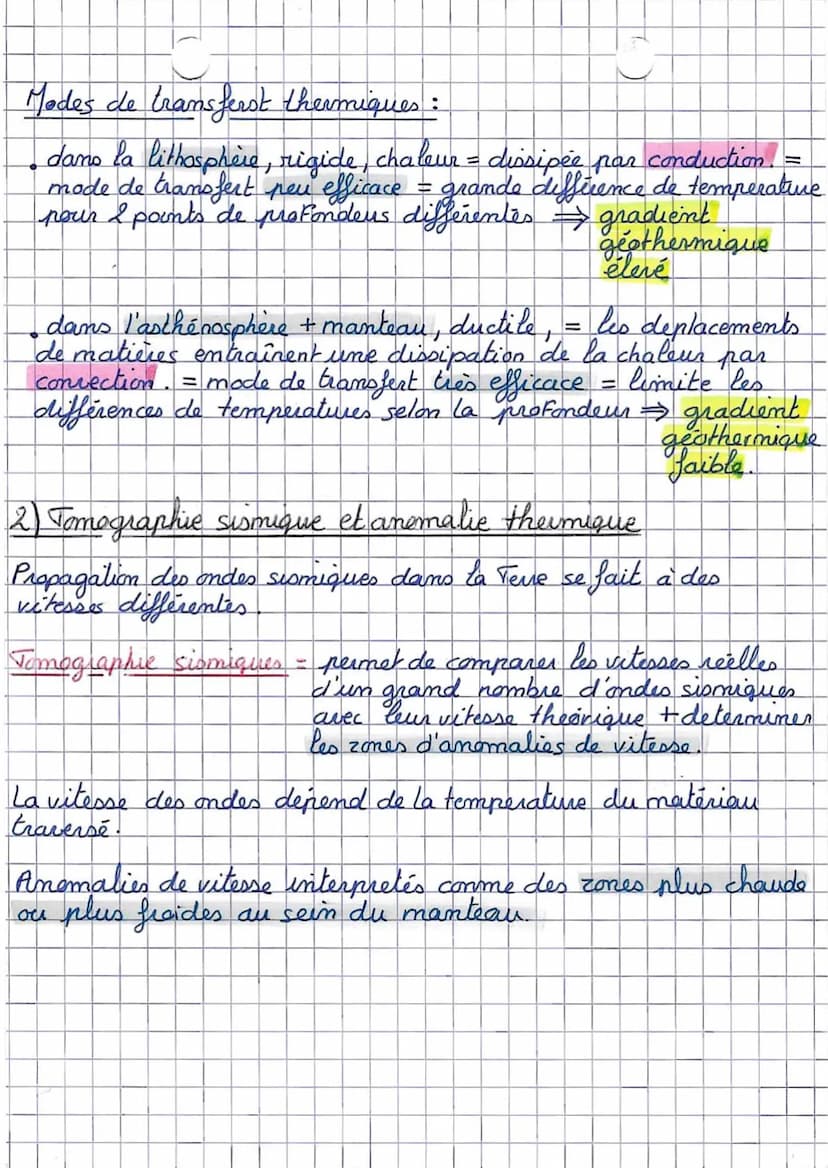 Modes de transferot thermiques :
. dans la lithosphère, rigide, chaleur = dissipée par conduction. =
mode de transfert peu efficace = grande différence de temperature
pour 2 points de profondeurs différentes ⇒ gradient
géothermique
élevé
. dans l'asthénosphère + manteau, ductile, = les deplacements
de matières entraînent une dissipation de la chaleur par
convection. = mode de transfert très efficace = limite les
différences de temperatures selon la profondeur ⇒ gradient
géothermique
faible.
2) Tomographie sismique et anomalie thermique
Propagation des ondes sismiques dans la Terre se fait à des
vitesses différentes.
Tomographie sismiques = permet de comparer les vitesses réelles
d'un grand nombre d'ondes sismiques
avec leur vitesse theórique + determiner
les zones d'anomalies de vitesse.
La vitesse des ondes dépend de la temperature du matériau
traversé.
Anomalies de vitesse interpretés comme des zones plus chaude
ou plus froides au sein du manteau.